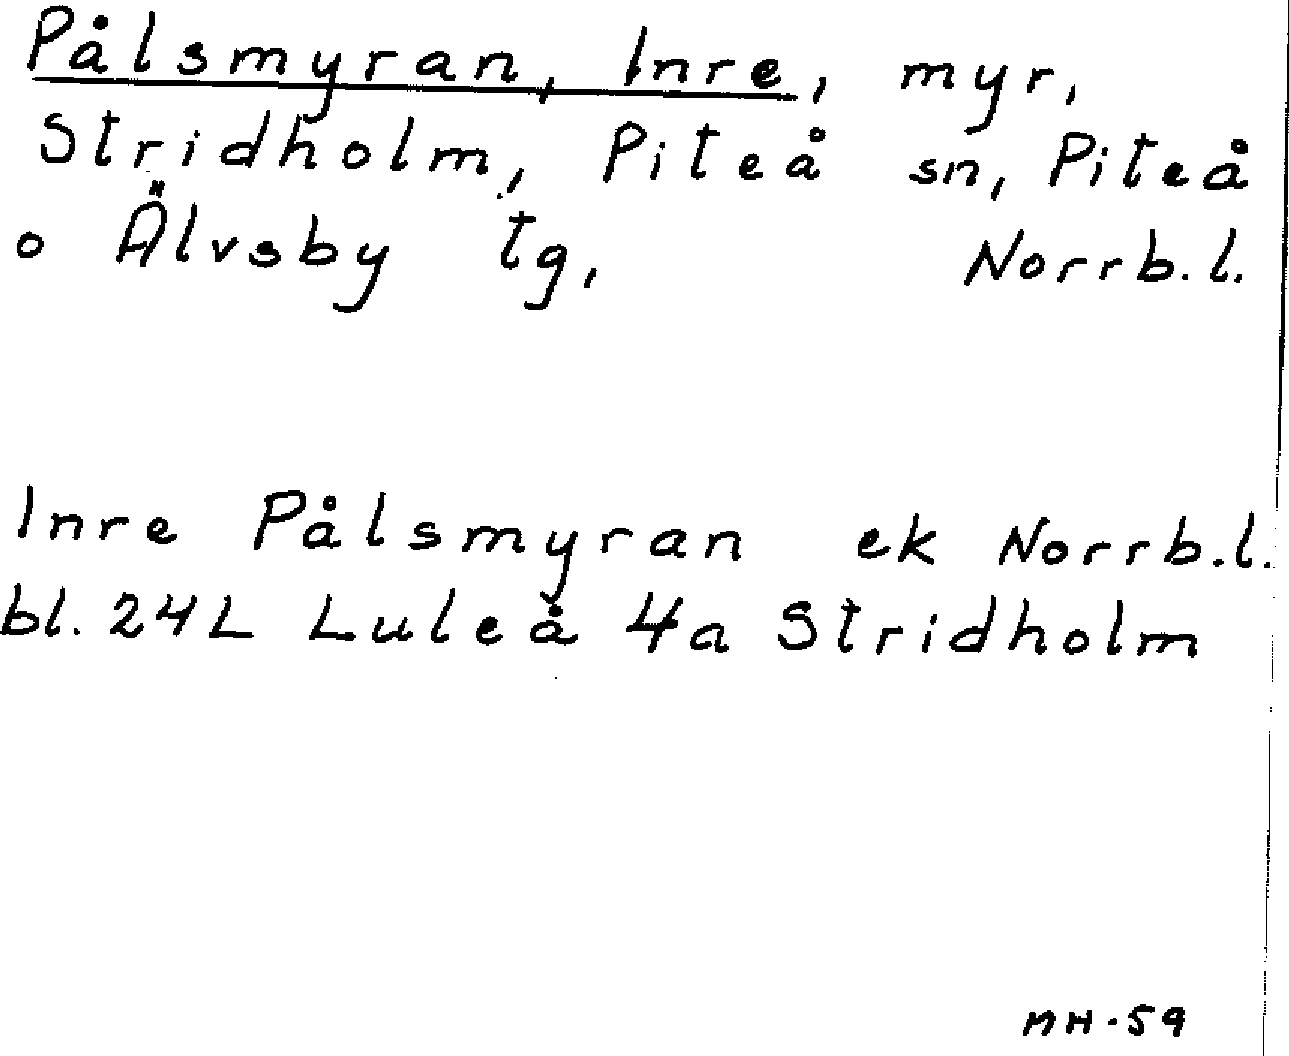 Pålsmyran, Inre, myr,
Stridholm, Piteå sn, Piteå
o Älvsby tg, Norrb.l.
Inre Pålsmyran ek Norrb.l.
bl. 24L Luleå 4a Stridholm
MH-59